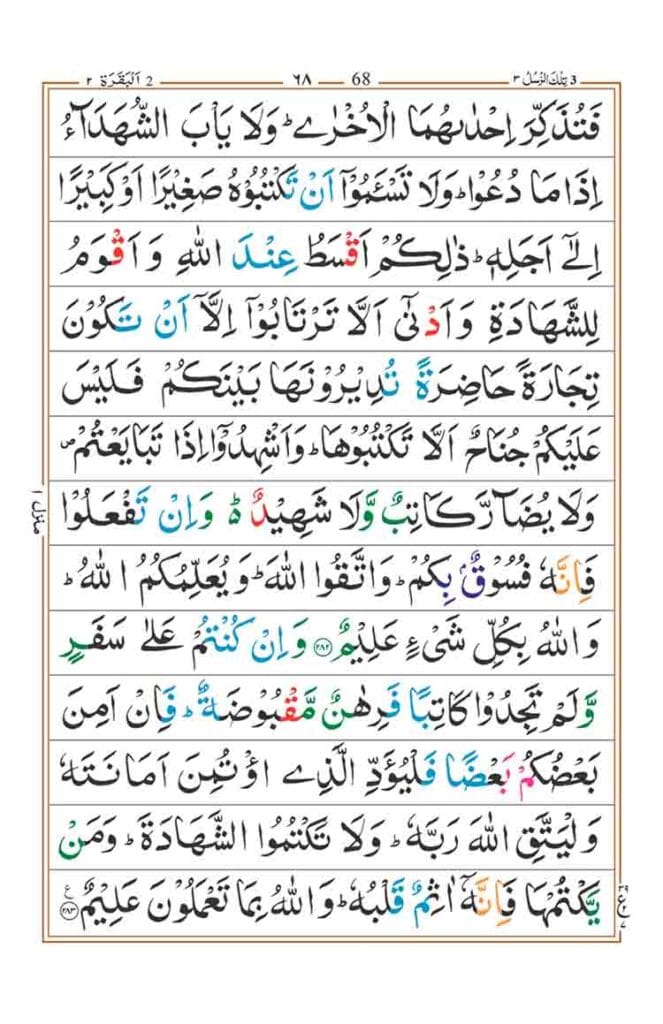 3 تِلْكَ الرُّسُلُ ٣ 68 ٦٨ 2 اَلْبَقَرَة ٢
فَتُذَكِّرَ اِحْدٰىهُمَا الْاُخْرٰى ؕ وَلَا يَاْبَ الشُّهَدَآءُ
اِذَا مَا دُعُوْا ؕ وَلَا تَسْـَٔمُوْۤا اَنْ تَكْتُبُوْهُ صَغِيْرًا اَوْ كَبِيْرًا
اِلٰٓى اَجَلِهٖ ؕ ذٰلِكُمْ اَقْسَطُ عِنْدَ اللّٰهِ وَ اَقْوَمُ
لِلشَّهَادَةِ وَ اَدْنٰۤى اَلَّا تَرْتَابُوْۤا اِلَّاۤ اَنْ تَكُوْنَ
تِجَارَةً حَاضِرَةً تُدِيْرُوْنَهَا بَيْنَكُمْ فَلَيْسَ
عَلَيْكُمْ جُنَاحٌ اَلَّا تَكْتُبُوْهَا ؕ وَاَشْهِدُوْۤا اِذَا تَبَايَعْتُمْ ۪
وَلَا يُضَآرَّ كَاتِبٌ وَّلَا شَهِيْدٌ ؕ۬ وَاِنْ تَفْعَلُوْا
فَاِنَّهٗ فُسُوْقٌۢ بِكُمْ ؕ وَاتَّقُوا اللّٰهَ ؕ وَيُعَلِّمُكُمُ اللّٰهُ ؕ
وَاللّٰهُ بِكُلِّ شَىْءٍ عَلِيْمٌ ﴿۲۸۲﴾ وَاِنْ كُنْتُمْ عَلٰى سَفَرٍ
وَّلَمْ تَجِدُوْا كَاتِبًا فَرِهٰنٌ مَّقْبُوْضَةٌ ؕ فَاِنْ اَمِنَ
بَعْضُكُمْ بَعْضًا فَلْيُؤَدِّ الَّذِى اؤْتُمِنَ اَمَانَتَهٗ
وَلْيَتَّقِ اللّٰهَ رَبَّهٗ ؕ وَلَا تَكْتُمُوا الشَّهَادَةَ ؕ وَمَنْ
يَّكْتُمْهَا فَاِنَّهٗۤ اٰثِمٌ قَلْبُهٗ ؕ وَاللّٰهُ بِمَا تَعْمَلُوْنَ عَلِيْمٌ ﴿۲۸۳﴾ ع
منزل ١